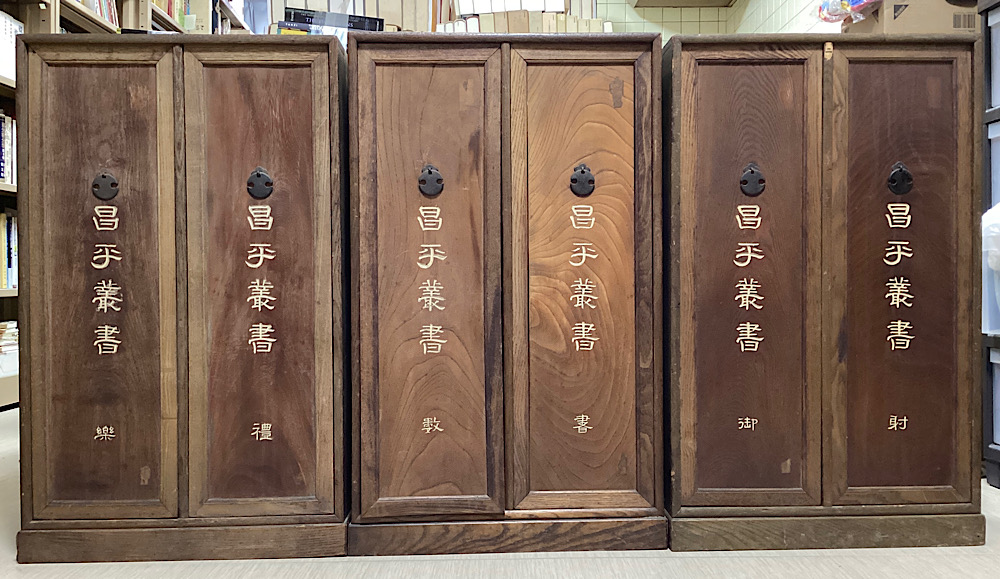 昌平叢書
射
昌平叢書
御
昌平叢書
書
昌平叢書
數
昌平叢書
禮
昌平叢書
樂